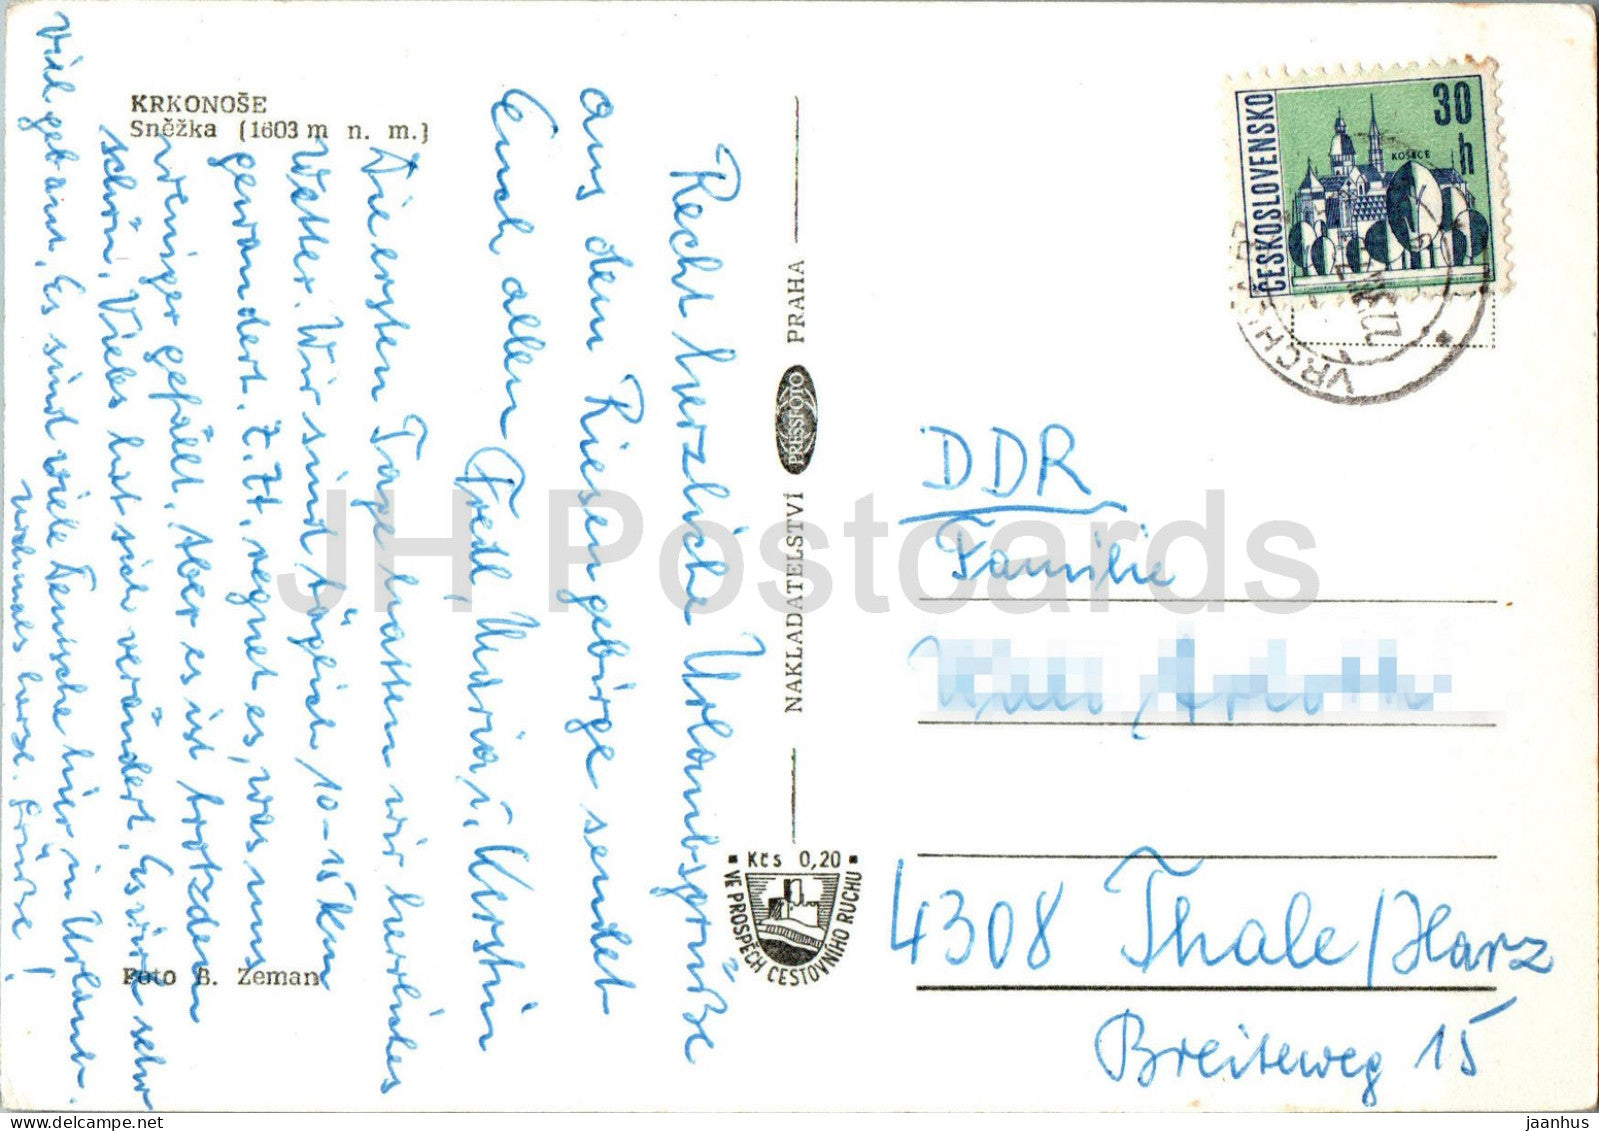 KRKONOŠE
Sněžka (1603 m n. m.)
Recht herzliche Urlaubsgrüße
aus dem Riesengebirge sendet
Euch allen Fredl, Maria u. Kerstin
Die ersten Tage hatten wir herrliches
Wetter. Wir sind täglich 10-15 km
gewandert. Z.Zt. regnet es, was uns
weniger gefällt. Aber es ist trotzdem
schön. Vieles hat sich verändert. Es wird sehr
viel gebaut. Es sind viele Deutsche hier in Urlaub.
Nochmals herzl. Grüße!
Foto B. Zeman
NAKLADATELSTVÍ PRESSFOTO PRAHA
Kčs 0,20
VE PROSPĚCH CESTOVNÍHO RUCHU
ČESKOSLOVENSKO
30 h
KOŠICE
VRCH
DDR
Familie
4308 Thale/Harz
Breiteweg 15
JH Postcards
jaanhus
delcampe.net